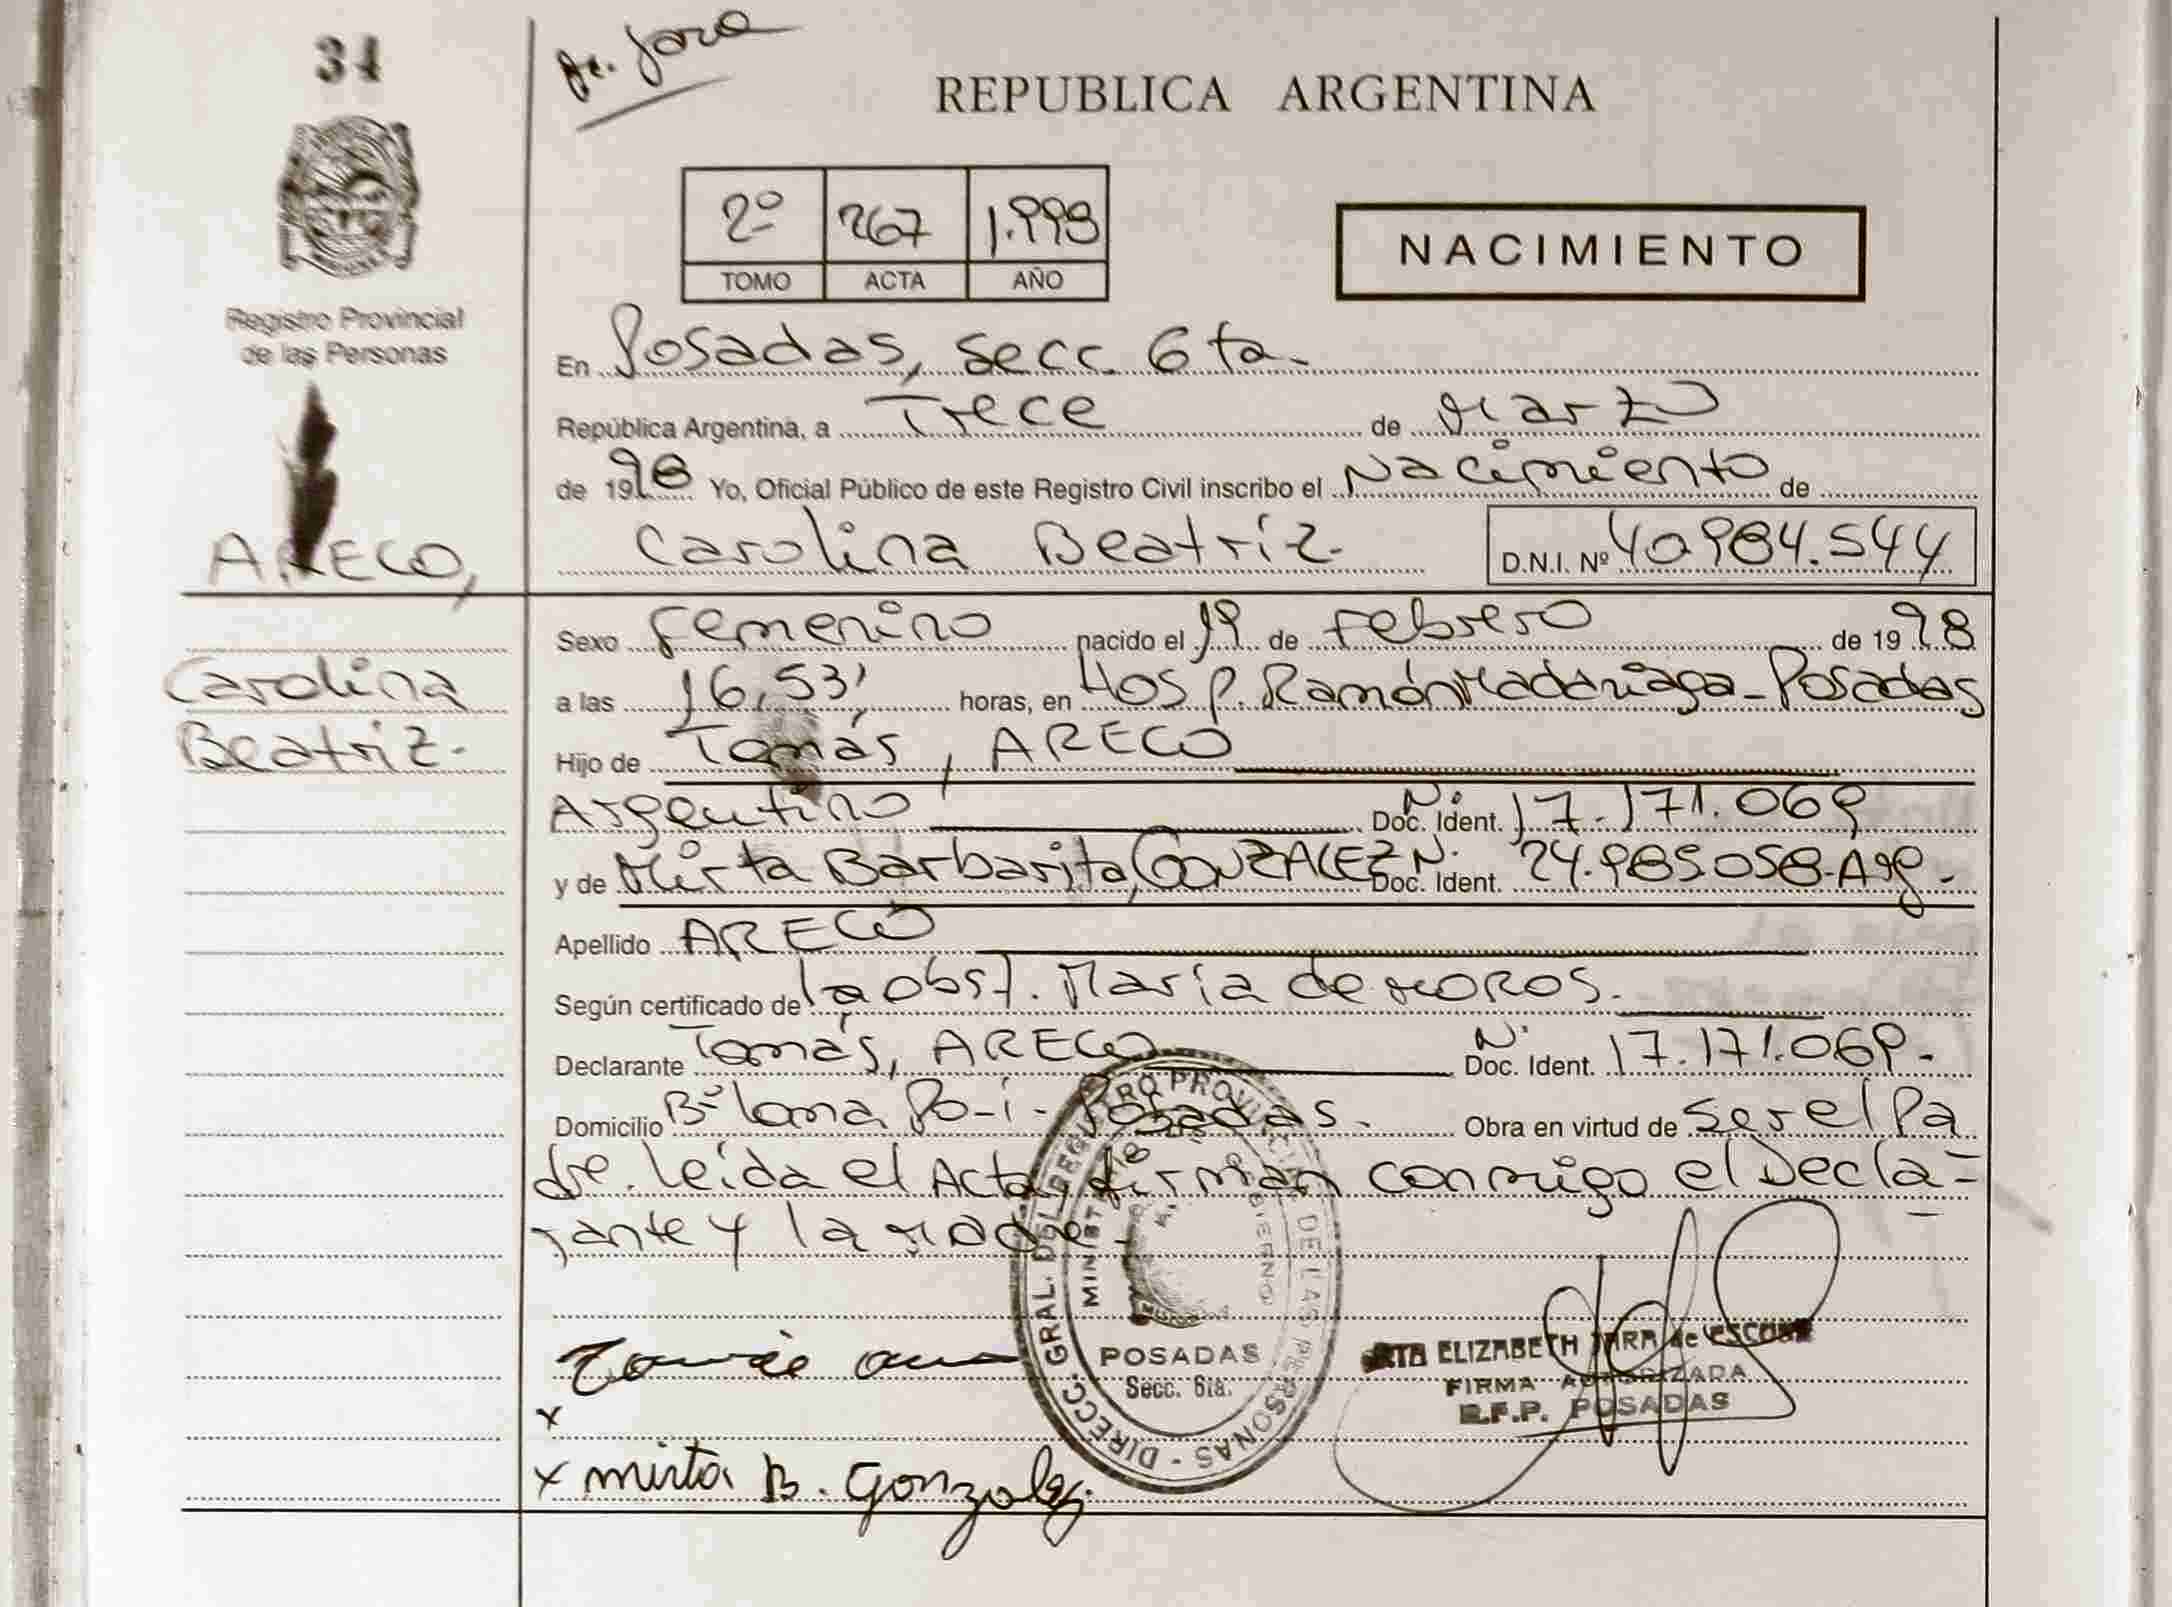 34
REPUBLICA ARGENTINA
2º 267 1.998
TOMO ACTA AÑO
NACIMIENTO
Registro Provincial
de las Personas
En Posadas, Secc. 6ta.
República Argentina, a Trece de Marzo
de 1998 Yo, Oficial Público de este Registro Civil inscribo el Nacimiento de
Carolina Beatriz. D.N.I. Nº 40.984.544
ARECO,
Carolina
Beatriz.
Sexo femenino nacido el 19 de Febrero de 1998
a las 16,53, horas, en Hosp. Ramón Madariaga - Posadas
Hijo de Tomás, ARECO
Argentino Nº Doc. Ident. 17.171.069
y de Mirta Barbarita, GONZALEZ Nº Doc. Ident. 24.985.058-Arg.
Apellido ARECO
Según certificado de la obst. María de MOROS.
Declarante Tomás, ARECO Nº Doc. Ident. 17.171.069.
Domicilio Bº Loma Posadas. Obra en virtud de ser el Pa
dre. leída el Acta, firman conmigo el Decla-
rante y la Madre.
DIRECC. GRAL. DEL REGISTRO PROVINCIAL DE LAS PERSONAS
POSADAS
Secc. 6ta.
ELIZABETH JARA de ESCOBAR
FIRMA AUTORIZADA
POSADAS
x
x mirta B. Gonzalez.